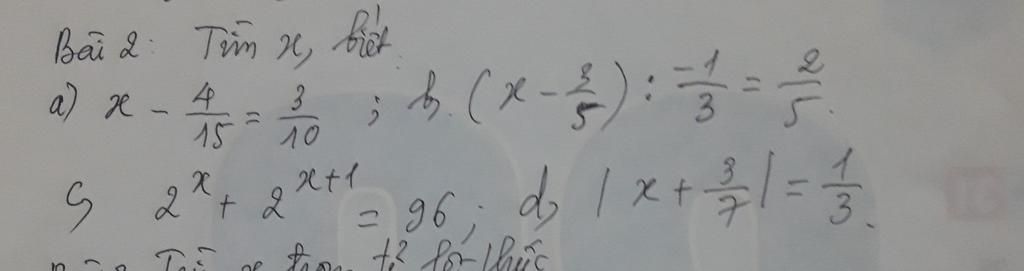 Bài 2: Tìm x, biết.
a) x - 4/15 = 3/10 ; b, (x - 3/5) : -1/3 = 2/5.
c, 2^x + 2^(x+1) = 96 ; d, |x + 3/7| = 1/3.